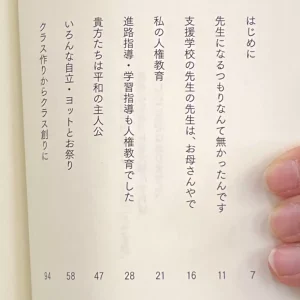 はじめに 7
先生になるつもりなんて無かったんです 11
支援学校の先生の先生は、お母さんやで 16
私の人権教育 21
進路指導・学習指導も人権教育でした 28
貴方たちは平和の主人公 47
いろんな自立・ヨットとお祭り 58
クラス作りからクラス創りに 94